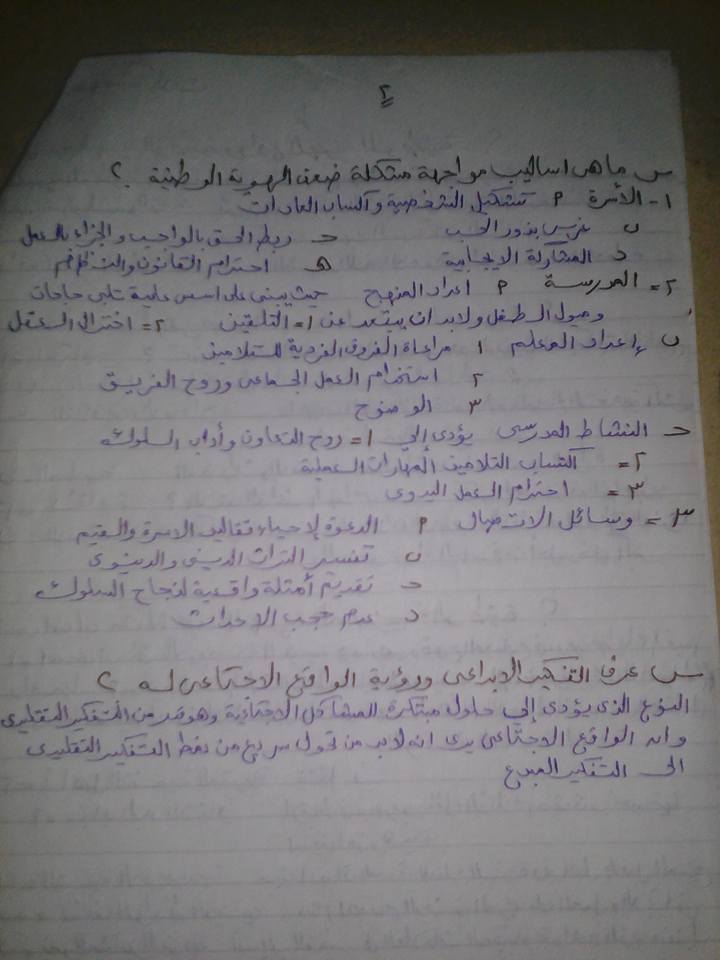 ٢
س ما هى اساليب مواجهة مشكلة ضعف الهوية الوطنية ؟
١- الأسرة   P تشكيل الشخصية واكساب العادات
ب غرس بذور الحب   ح ربط الحق بالواجب والجزاء بالعمل
د المشاركة الايجابية   هـ احترام القانون والنظم
٢= المدرسة   P اعداد المنهج حيث يبنى على اسس علمية تلبى حاجات
وميول الطفل ولابد ان يبتعد عن ١= التلقين   ٢= اختزال العقل
ب إعداد المعلم   ١ مراعاة الفروق الفردية للتلاميذ
٢ استخدام العمل الجماعى وروح الفريق
٣ الوضوح
ح النشاط المدرسى يؤدى إلي ١= روح التعاون وأداب السلوك
٢= اكتساب التلاميذ المهارات العملية
٣= احترام العمل اليدوى
٣= وسائل الاتصال   P الدعوة لإحياء تقاليد الاسرة والقيم
ب تفسير التراث الدينى والدنيوى
ح تقديم أمثلة واقعية لنجاح السلوك
د عدم حجب الاحداث
س عرف التفكير الابداعى ورؤية الواقع الاجتماعى له ؟
النوع الذى يؤدى إلي حلول مبتكرة للمشاكل الاجتماعية وهو ضد من التفكير التقليدى
وان الواقع الاجتماعى يرى انه لابد من تحول سريع من نمط التفكير التقليدى
الى التفكير المبدع